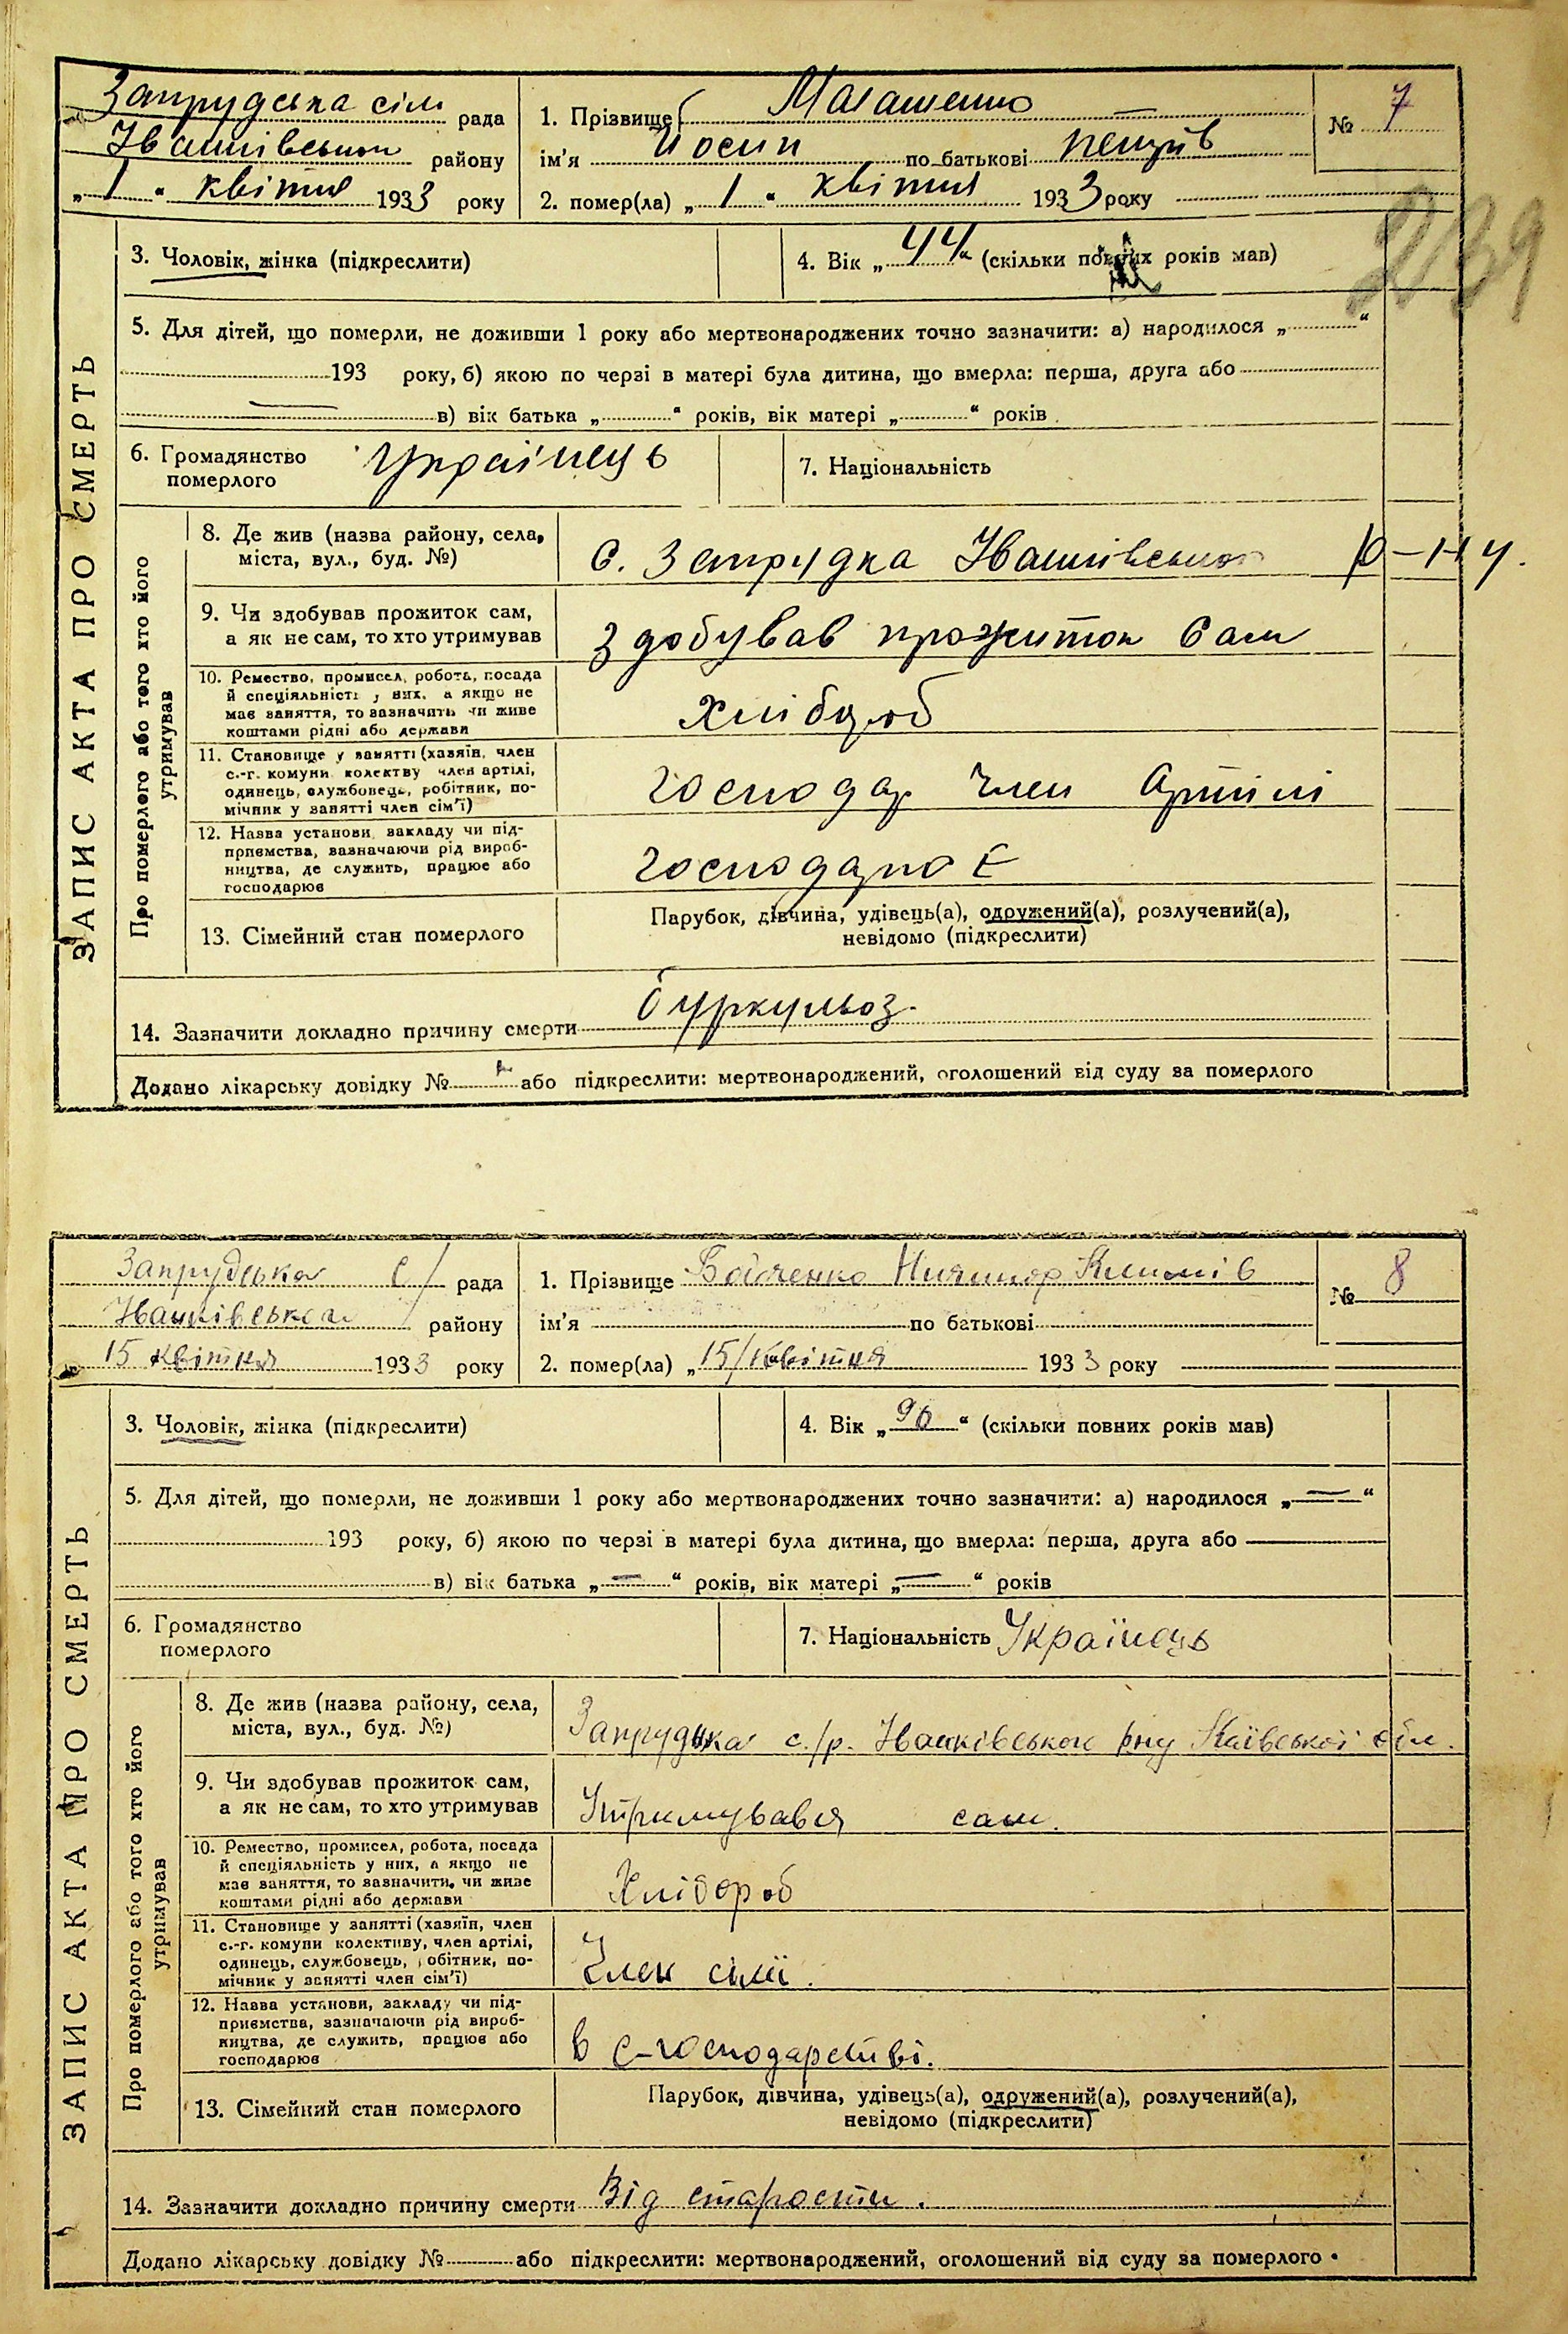 Запрудська сіль рада
Іванківського району
„ 1 “ квітня 1933 року
1. Прізвище Магашенко
ім'я Йосип по батькові Петрів
№ 7
2. помер(ла) „ 1 “ квітня 1933 року
239
ЗАПИС АКТА ПРО СМЕРТЬ
3. Чоловік, жінка (підкреслити)
4. Вік „ 44 “ (скільки повних років мав)
5. Для дітей, що померли, не доживши 1 року або мертвонароджених точно зазначити: а) народилося „ “
193 року, б) якою по черзі в матері була дитина, що вмерла: перша, друга або
в) вік батька „ “ років, вік матері „ “ років
6. Громадянство
померлого
Українець
7. Національність
Про померлого або того хто його
утримував
8. Де жив (назва району, села,
міста, вул., буд. №)
С. Запрудка Іванківського р-ну.
9. Чи здобував прожиток сам,
а як не сам, то хто утримував
Здобував прожиток сам
10. Ремество, промисел, робота, посада
й спеціяльність у них, а якщо не
має заняття, то зазначить чи живе
коштами рідні або держави
Хлібороб
11. Становище у занятті (хазяїн, член
с.-г. комуни колектву член артілі,
одинець, службовець, робітник, по-
мічник у занятті член сім'ї)
Господар Член Артілі
12. Назва установи, закладу чи під-
приємства, зазначаючи рід вироб-
ництва, де служить, працює або
господарює
Господарює
13. Сімейний стан померлого
Парубок, дівчина, удівець(а), одружений(а), розлучений(а),
невідомо (підкреслити)
14. Зазначити докладно причину смерти Туркульоз.
Додано лікарську довідку № або підкреслити: мертвонароджений, оголошений від суду за померлого
Запрудська с/ рада
Іванківського району
„ 15 квітня 1933 року
1. Прізвище Бойченко Ничипор Климів
ім'я по батькові
№ 8
2. помер(ла) „ 15/квітня 1933 року
ЗАПИС АКТА ПРО СМЕРТЬ
3. Чоловік, жінка (підкреслити)
4. Вік „ 96 “ (скільки повних років мав)
5. Для дітей, що померли, не доживши 1 року або мертвонароджених точно зазначити: а) народилося „ — “
193 року, б) якою по черзі в матері була дитина, що вмерла: перша, друга або
в) вік батька „ — “ років, вік матері „ — “ років
6. Громадянство
померлого
7. Національність Українець
Про померлого або того хто його
утримував
8. Де жив (назва району, села,
міста, вул., буд. №)
Запрудська с./р. Іванківського рну Київської обл.
9. Чи здобував прожиток сам,
а як не сам, то хто утримував
Утримувався сам.
10. Ремество, промисел, робота, посада
й спеціяльність у них, а якщо не
має заняття, то зазначити, чи живе
коштами рідні або держави
Хлібороб
11. Становище у занятті (хазяїн, член
с.-г. комуни колективу, член артілі,
одинець, службовець, робітник, по-
мічник у занятті член сім'ї)
Член сімї.
12. Назва установи, закладу чи під-
приємства, зазначаючи рід вироб-
ництва, де служить, працює або
господарює
в с-господарстві.
13. Сімейний стан померлого
Парубок, дівчина, удівець(а), одружений(а), розлучений(а),
невідомо (підкреслити)
14. Зазначити докладно причину смерти Від старости.
Додано лікарську довідку № або підкреслити: мертвонароджений, оголошений від суду за померлого